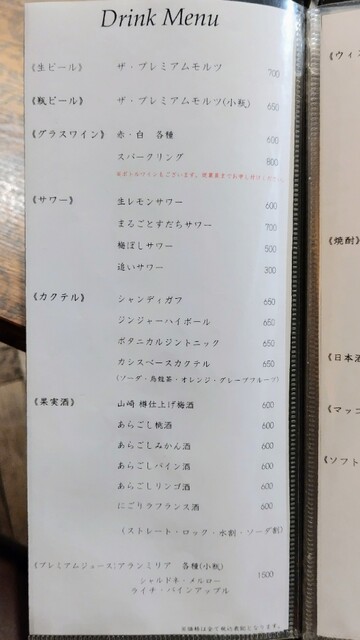 Drink Menu
《生ビール》 ザ・プレミアムモルツ 700
《瓶ビール》 ザ・プレミアムモルツ(小瓶) 650
《グラスワイン》 赤・白 各種 600
スパークリング 800
《サワー》 生レモンサワー 600
まるごとすだちサワー 700
梅ぼしサワー 500
追いサワー 300
《カクテル》 シャンディガフ 650
ジンジャーハイボール 650
ボタニカルジントニック 650
カシスベースカクテル 650
(ソーダ・烏龍茶・オレンジ・グレープフルーツ)
《果実酒》 山崎 樽仕上げ梅酒 600
あらごし桃酒 600
あらごしみかん酒 600
あらごしパイン酒 600
あらごしリンゴ酒 600
にごりラフランス酒 600
(ストレート・ロック・水割・ソーダ割)
《プレミアムジュース:アランミリア 各種(小瓶) 1500
シャルドネ・メルロー
ライチ・パインアップル
《ウィ
《焼酎》
《日本酒
《マッコ
《ソフト